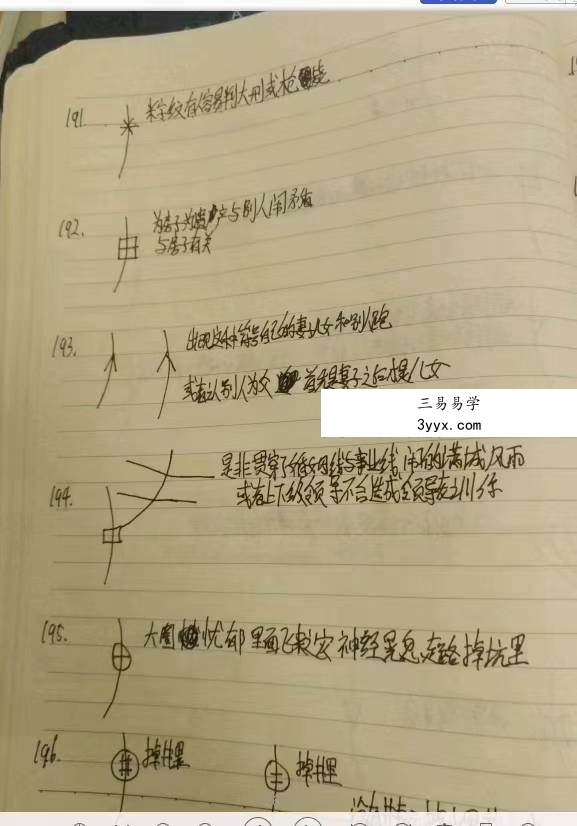 191. 米字纹存容易判大刑或枪毙
192. 为房子为遗产与别人闹矛盾
与房子有关
193. 出现这种符号自己的妻儿女和别人跑
或者认别人为父 首先是妻子之后才是儿女
三易易学
3yyx.com
194. 是非贯穿了 线与事业线,闹的满城风雨
或者上下级领导不合造成领导
195. 大圈 忧郁里面飞灾 神经 走路掉坑里
196. 掉井里 掉井里